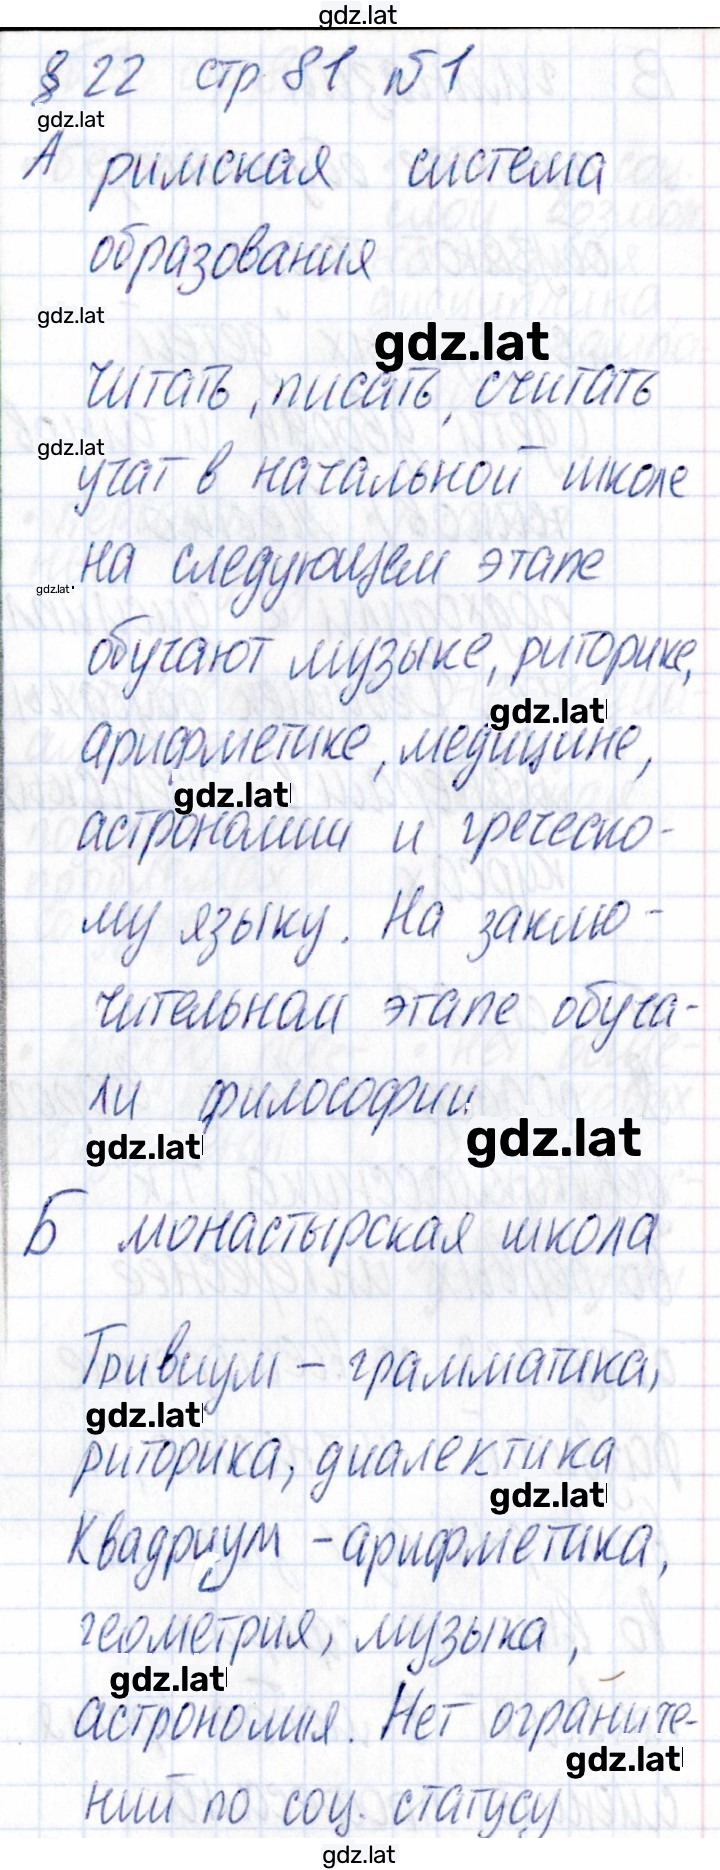 gdz.lat
§ 22 стр 81 №1
gdz.lat
А римская система
образования
gdz.lat
gdz.lat
читать, писать, считать
gdz.lat
учат в начальной школе
на следующем этапе
gdz.lat
обучают музыке, риторике,
gdz.lat
арифметике, медицине,
gdz.lat
астрономии и греческо-
му языку. На заклю-
чительном этапе обуча-
ли философии
gdz.lat
gdz.lat
Б монастырская школа
Тривиум – грамматика,
gdz.lat
риторика, диалектика
gdz.lat
Квадриум – арифметика,
геометрия, музыка,
gdz.lat
астрономия. Нет ограниче-
gdz.lat
ний по соц. статусу
gdz.lat